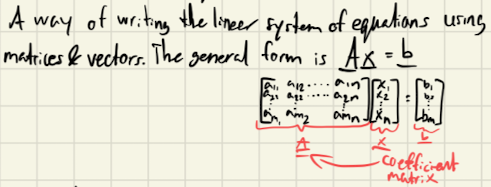 A way of writing the linear system of equations using
matrices & vectors. The general form is Ax = b
[a11 a12 ..... a1n] [x1] = [b1]
[a21 a22 ..... a2n] [x2] [b2]
[⋮ ⋮ ⋮] [⋮] [⋮]
[am1 am2 amn] [xn] [bm]
A x b
coefficient
matrix